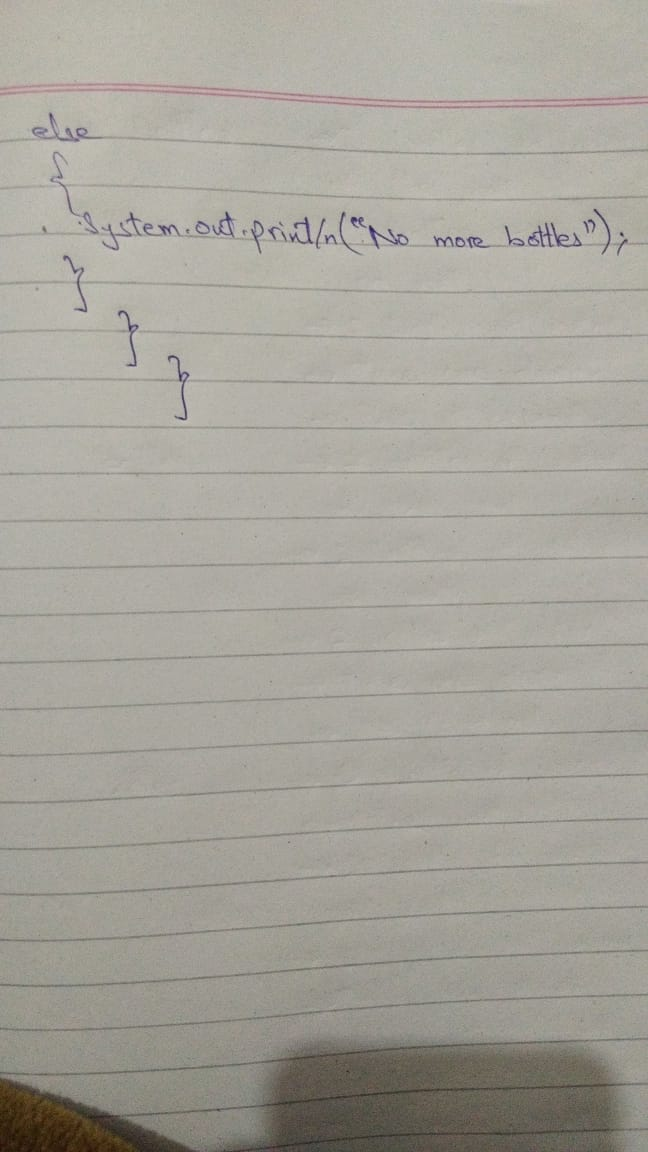 else
{
System.out.println("No more bottles");
}
}
}